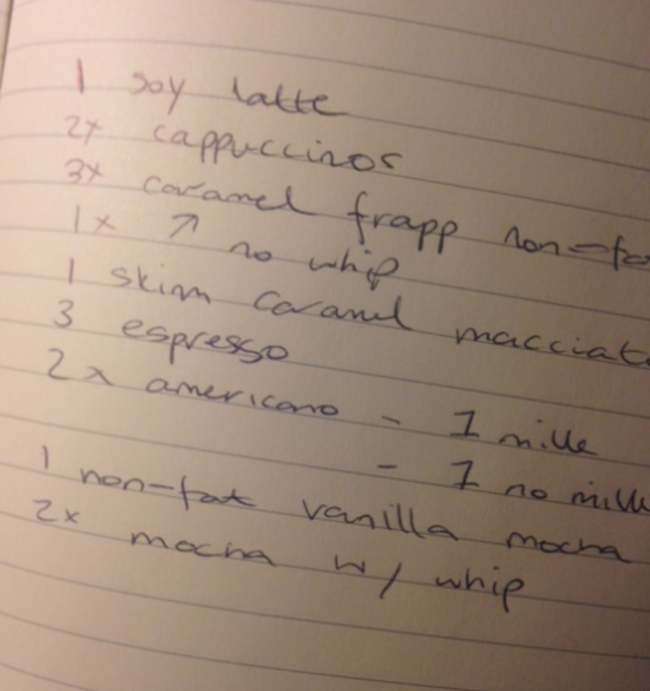 1 soy latte
2x cappuccinos
3x caramel frapp non-fa
1x ↗ no whip
1 skinm caramel macciat
3 espresso
2x americano - 1 milk
- 1 no milk
1 non-fat vanilla mocha
2x mocha w/ whip